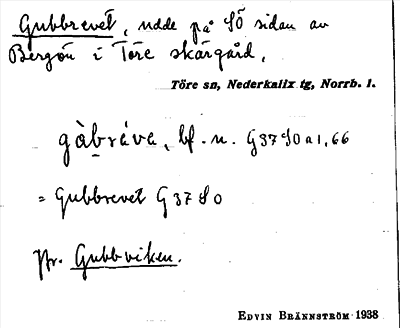 Gubbrevet, udde på SÖ sidan av
Bergön i Töre skärgård.
Töre sn, Nederkalix tg, Norrb. l.
gàbráva, bf. n. G37 SO a 1, 66
= Gubbrevet G 37 SO
Jfr. Gubbviken.
EDVIN BRÄNNSTRÖM 1938